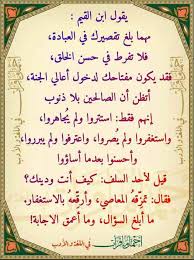 يقول ابن القيم :
مهما بلغ تقصيرك في العبادة،
فلا تفرط في حسن الخلق،
فقد يكون مفتاحك لدخول أعالي الجنة،
أتظن أن الصالحين بلا ذنوب
إنهم فقط: استتروا ولم يُجاهروا،
واستغفروا ولم يُصروا، واعترفوا ولم يبرروا،
وأحسنوا بعدما أساؤوا
قيل لأحد السلف: كيف أنت ودينك؟
فقال: تمزّقه المعاصي، وأرقّعه بالاستغفار.
ما أبلغ السؤال، وما أعمق الاجابة!
في اللغة و الأدب